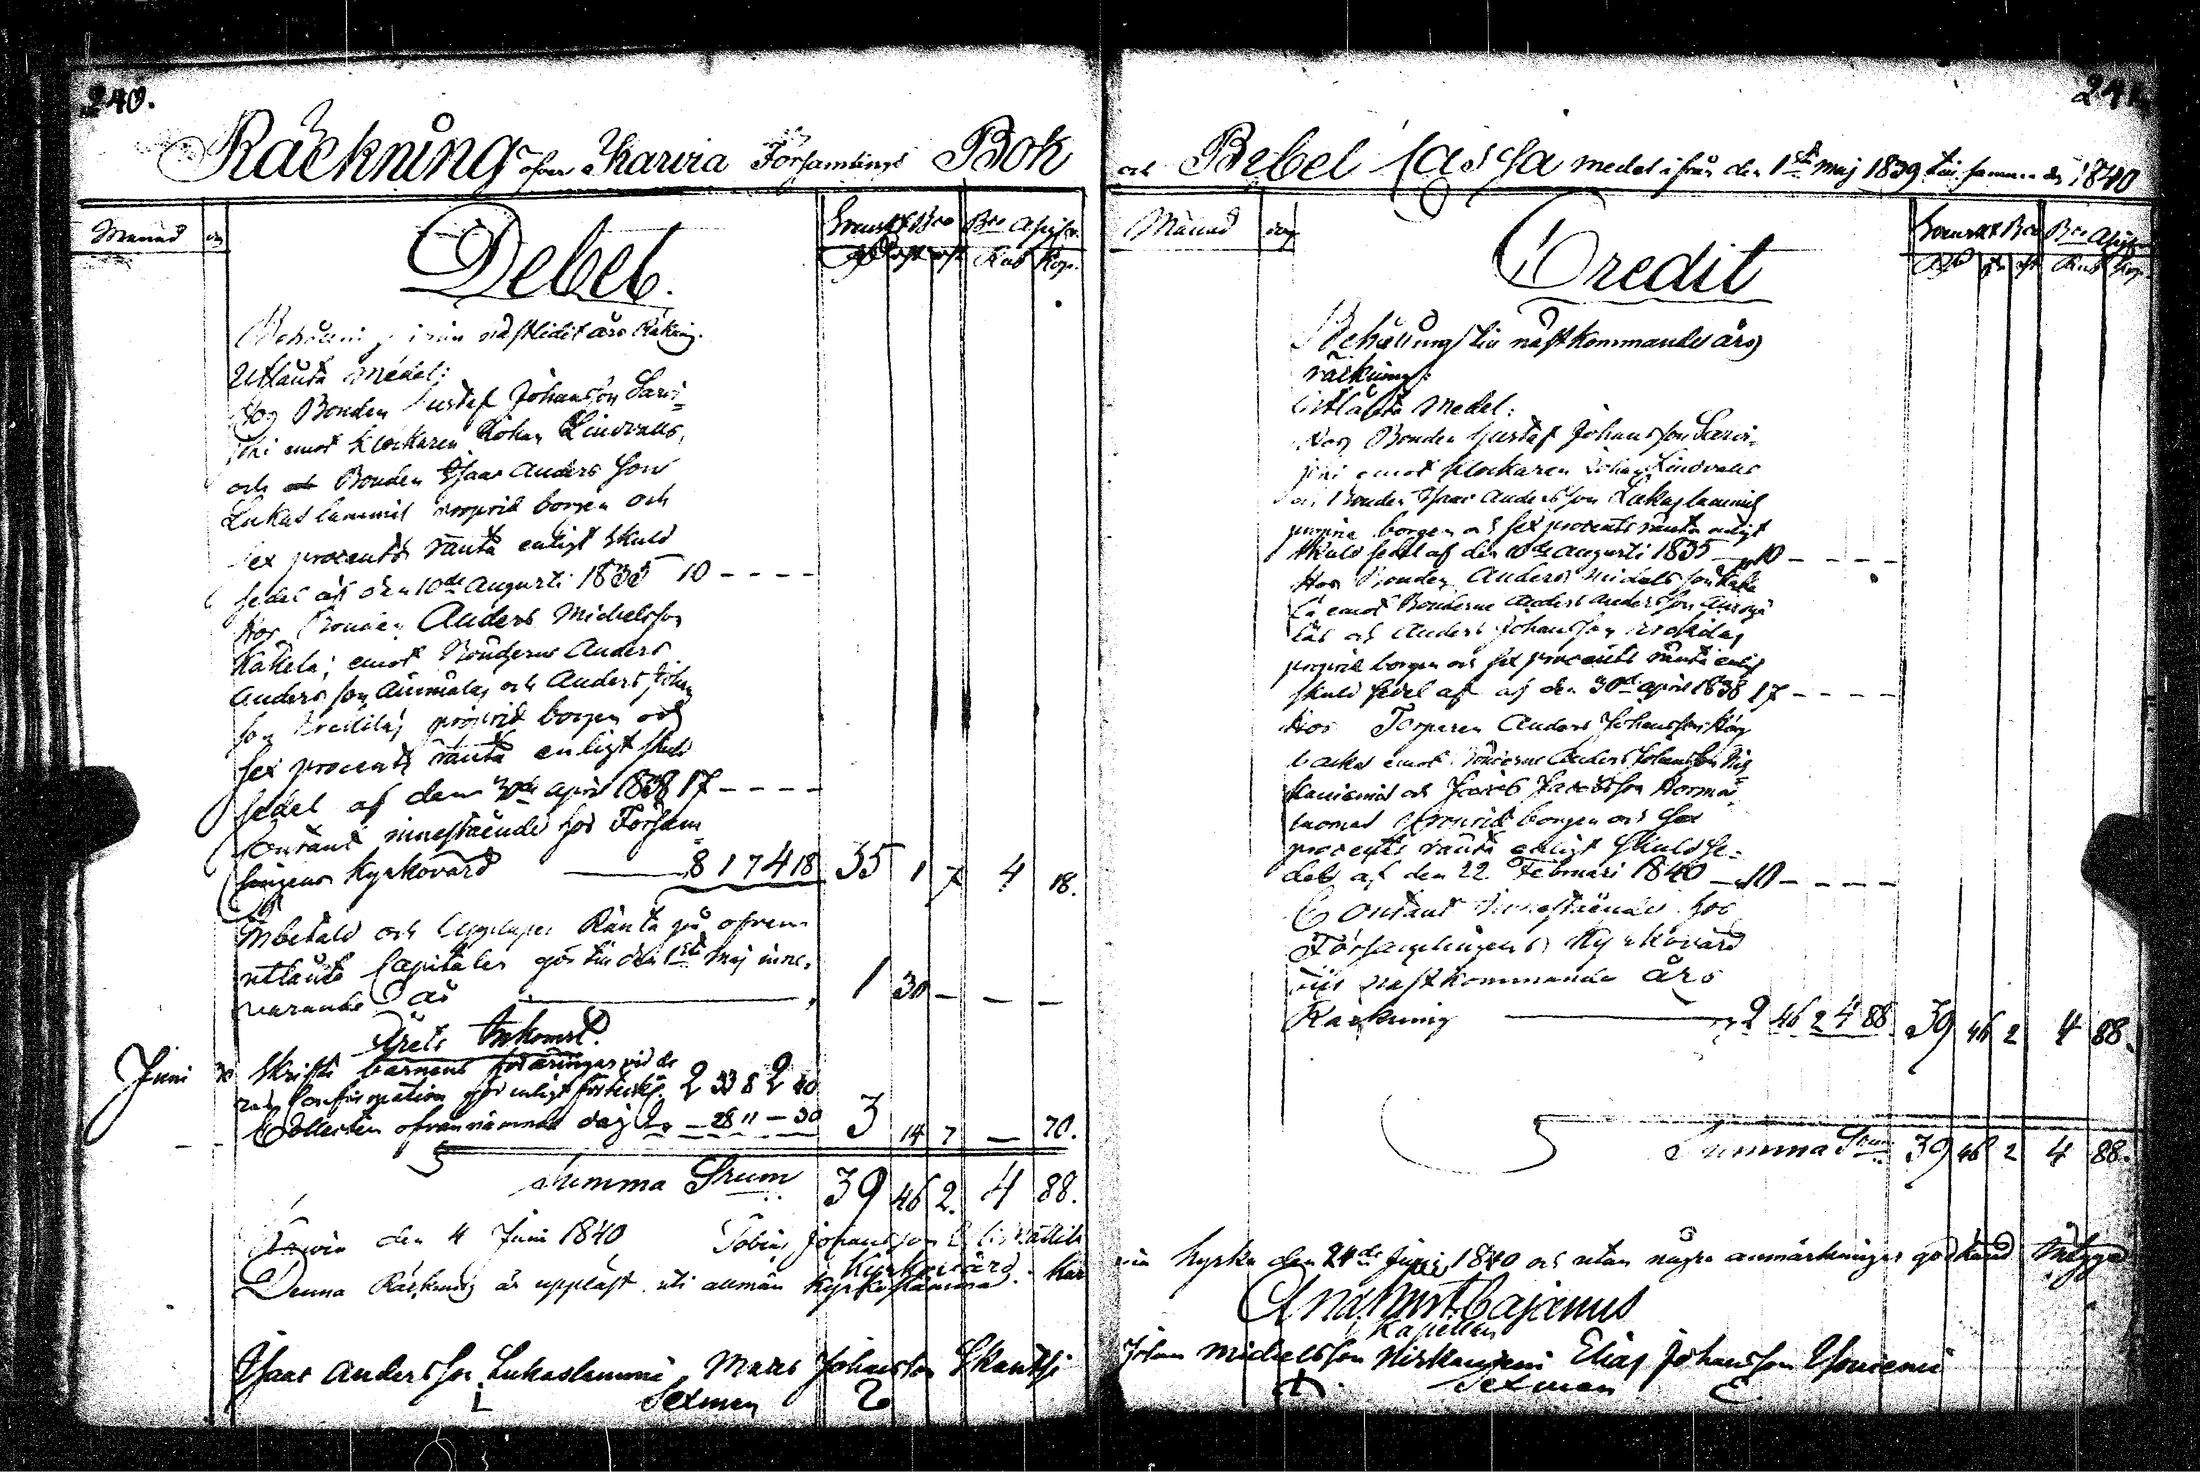 240.
Räckning öfver Karvia Församlings Bok
Månad dag
Debet.
Rub Kop.
från näst ledit års Räkning.
Utlånta medel:
Hos Bonden Gustaf Johansson Sarvi=
joki emot Klockaren Johan Lindvalls,
och Bonden Isaac Anders Son
Lukaslammis proprié borgen och
sex procents ränta enligt skuld
sedel af den 10de Augusti 1835 10 - - - -
Hos Bonden Anders Michelsson
Kakela; emot Bönderne Anders
Anders son och Anders Johan
son proprié borgen och
sex procents ränta enligt skuld
sedel af dem 30de April 1838 17 - - - -
Contant innestående hos Försam
lingens Kyrkovärd 8 1 7 4 18 35 1 7 4 18.
Inbetald och Upplupen Ränta på ofvan
utlånte Capitaler gör till den 1sta Maj inne-
varande år 1 30 — — —
Årets Inkomst.
Juni 30 Skrifte barnens föräringar vid de
ras Confirmation gör enligt förteckg. 2 33 8 2 40
Collecten ofvannämnde dag — 28 11 — 30 3 14 7 — 70.
Summa Srum 39 46 2. 4 88.
Karvia den 4 Juni 1840 Tobias Johansson
Kyrkovärd.
Denna Räkning är uppläst uti allmän Kyrkostämma Kar
Isaac Andersson Lukaslammi Mats Johansson Skantsi
Sexmen
241
och Bibel Cassa medel ifrån den 1sta Maj 1839 till samma dag 1840
Månad dag
Credit
Rub Kop.
Behållning till nästkommande års
räkning:
Utlånta Medel:
Hos Bonden Gustaf Johansson Sarvi-
joki emot Klockaren Johan Lindvalls
och Bonden Isaac Andersson Lukaslammis
proprie borgen och sex procents ränta enligt
skuld sedel af den 10de Augusti 1835 10 - - - -
Hos Bonden Anders Michelsson Kake
la emot Bönderne Anders Andersson
läs och Anders Johansson
proprié borgen och sex procents ränta enligt
skuld sedel af af den 30de April 1838 17 - - - -
Hos Torparen Anders Johansson
backa emot Bönderne Anders Johansson
och Jacob Jacobsson
proprié borgen och sex
procents ränta enligt skuldse=
del af den 22 Februari 1840 10 - - - -
Contant innestående hos
Församlingens Kyrkovärd
till nästkommande års
Räkning 2 46 2 4 88 39 46 2 4 88.
Summa Srum 39 46 2 4 88.
via Kyrka den 24de Juni 1840 och utan några anmärkningar godkänd
Cajanus
Kapellan
Johan Michelsson Elias Johansson
Sexman